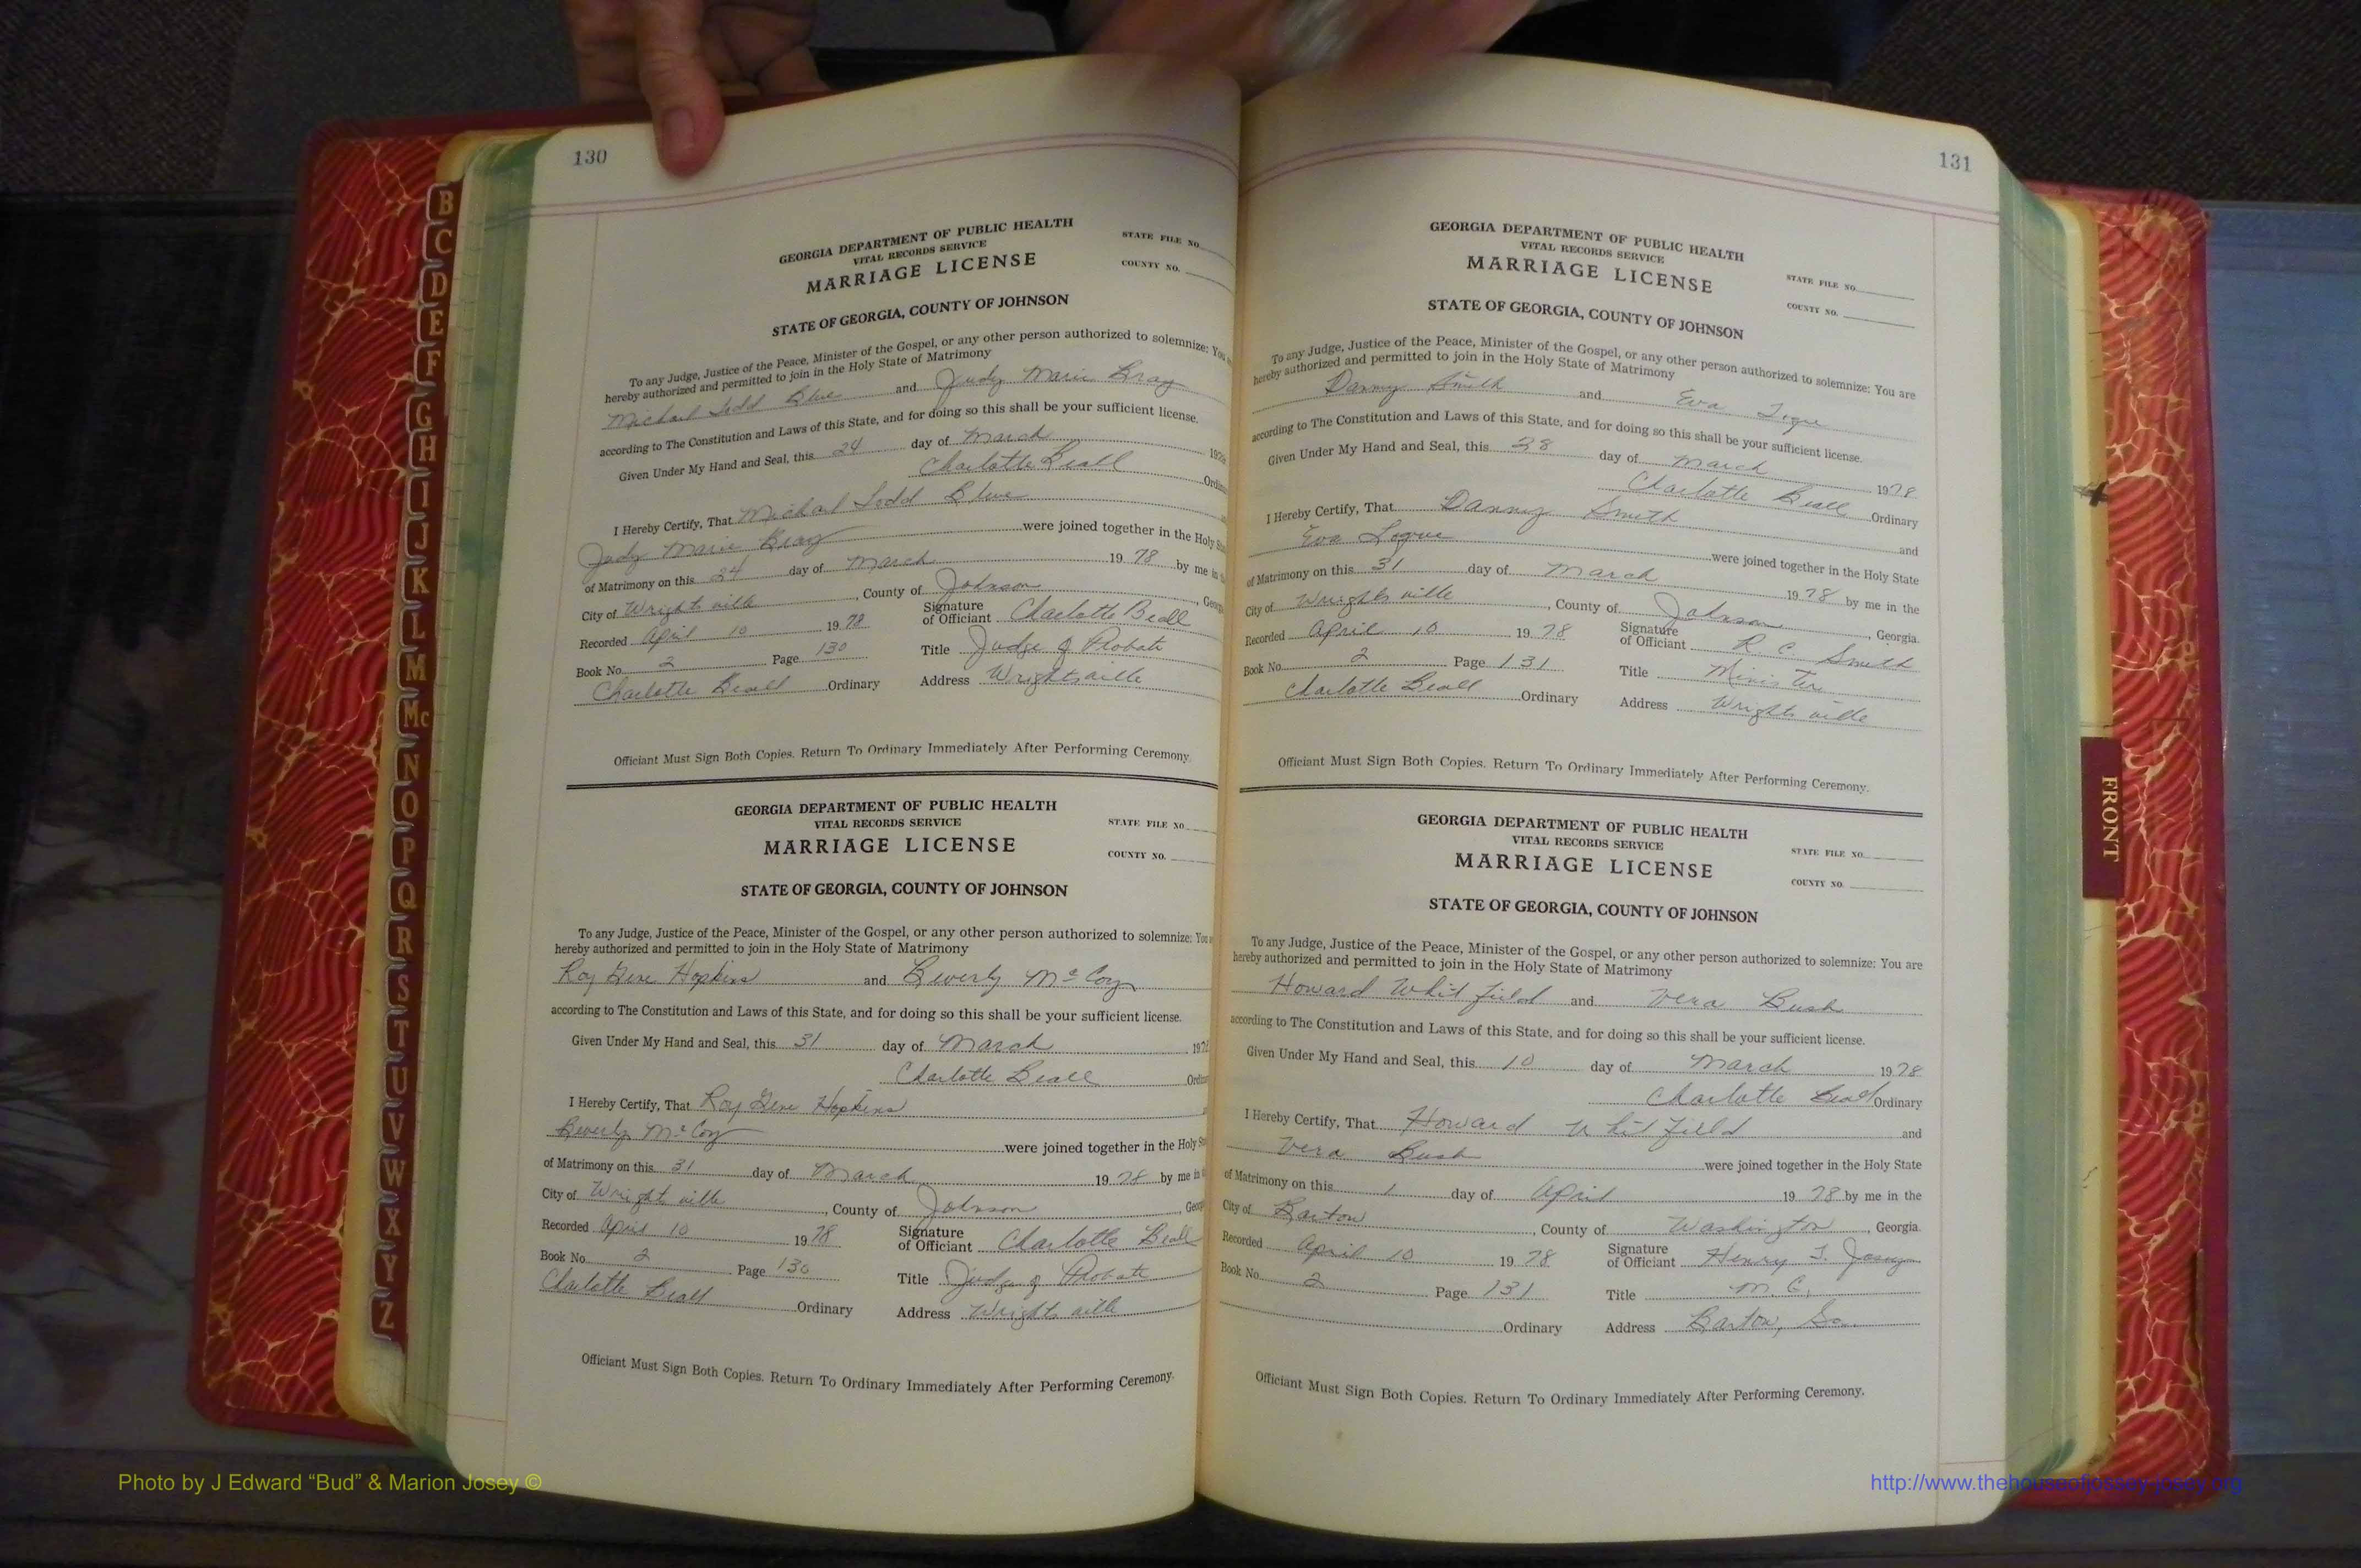 130
GEORGIA DEPARTMENT OF PUBLIC HEALTH
VITAL RECORDS SERVICE
MARRIAGE LICENSE
STATE FILE NO.
COUNTY NO.
STATE OF GEORGIA, COUNTY OF JOHNSON
To any Judge, Justice of the Peace, Minister of the Gospel, or any other person authorized to solemnize: You
hereby authorized and permitted to join in the Holy State of Matrimony
Michael Todd Blue and Judy Marie Bray
according to The Constitution and Laws of this State, and for doing so this shall be your sufficient license.
Given Under My Hand and Seal, this 24 day of March 197
Charlotte Beall Ordin
I Hereby Certify, That Michael Todd Blue
Judy Marie Bray were joined together in the Holy
of Matrimony on this 24 day of March 1978 by me in
City of Wrightsville, County of Johnson, Georg
Recorded April 10 1978 Signature of Officiant Charlotte Beall
Book No. 2 Page 130 Title Judge of Probate
Charlotte Beall Ordinary Address Wrightsville
Officiant Must Sign Both Copies. Return To Ordinary Immediately After Performing Ceremony.
GEORGIA DEPARTMENT OF PUBLIC HEALTH
VITAL RECORDS SERVICE
MARRIAGE LICENSE
STATE FILE NO.
COUNTY NO.
STATE OF GEORGIA, COUNTY OF JOHNSON
To any Judge, Justice of the Peace, Minister of the Gospel, or any other person authorized to solemnize: You
hereby authorized and permitted to join in the Holy State of Matrimony
Roy Gene Hopkins and Beverly McCoy
according to The Constitution and Laws of this State, and for doing so this shall be your sufficient license.
Given Under My Hand and Seal, this 31 day of March 197
Charlotte Beall Ordin
I Hereby Certify, That Roy Gene Hopkins
Beverly McCoy were joined together in the Holy
of Matrimony on this 31 day of March 1978 by me in
City of Wrightsville, County of Johnson, Georg
Recorded April 10 1978 Signature of Officiant Charlotte Beall
Book No. 2 Page 130 Title Judge of Probate
Charlotte Beall Ordinary Address Wrightsville
Officiant Must Sign Both Copies. Return To Ordinary Immediately After Performing Ceremony.
131
GEORGIA DEPARTMENT OF PUBLIC HEALTH
VITAL RECORDS SERVICE
MARRIAGE LICENSE
STATE FILE NO.
COUNTY NO.
STATE OF GEORGIA, COUNTY OF JOHNSON
To any Judge, Justice of the Peace, Minister of the Gospel, or any other person authorized to solemnize: You are
hereby authorized and permitted to join in the Holy State of Matrimony
Danny Smith and Eva Logue
according to The Constitution and Laws of this State, and for doing so this shall be your sufficient license.
Given Under My Hand and Seal, this 28 day of March 1978
Charlotte Beall Ordinary
I Hereby Certify, That Danny Smith and
Eva Logue were joined together in the Holy State
of Matrimony on this 31 day of March 1978 by me in the
City of Wrightsville, County of Johnson, Georgia.
Recorded April 10 1978 Signature of Officiant R. C. Smith
Book No. 2 Page 131 Title Minister
Charlotte Beall Ordinary Address Wrightsville
Officiant Must Sign Both Copies. Return To Ordinary Immediately After Performing Ceremony.
GEORGIA DEPARTMENT OF PUBLIC HEALTH
VITAL RECORDS SERVICE
MARRIAGE LICENSE
STATE FILE NO.
COUNTY NO.
STATE OF GEORGIA, COUNTY OF JOHNSON
To any Judge, Justice of the Peace, Minister of the Gospel, or any other person authorized to solemnize: You are
hereby authorized and permitted to join in the Holy State of Matrimony
Howard Whitfield and Vera Bush
according to The Constitution and Laws of this State, and for doing so this shall be your sufficient license.
Given Under My Hand and Seal, this 10 day of March 1978
Charlotte Beall Ordinary
I Hereby Certify, That Howard Whitfield and
Vera Bush were joined together in the Holy State
of Matrimony on this 1 day of April 1978 by me in the
City of Bartow, County of Washington, Georgia.
Recorded April 10 1978 Signature of Officiant Henry J. Josey
Book No. 2 Page 131 Title M. G.
Ordinary Address Bartow, Ga.
Officiant Must Sign Both Copies. Return To Ordinary Immediately After Performing Ceremony.
B
C
D
E
F
G
H
I
J
K
L
M
Mc
N
O
P
Q
R
S
T
U
V
W
X
Y
Z
FRONT
Photo by J Edward “Bud” & Marion Josey ©
http://www.thehouseofjossey-josey.org